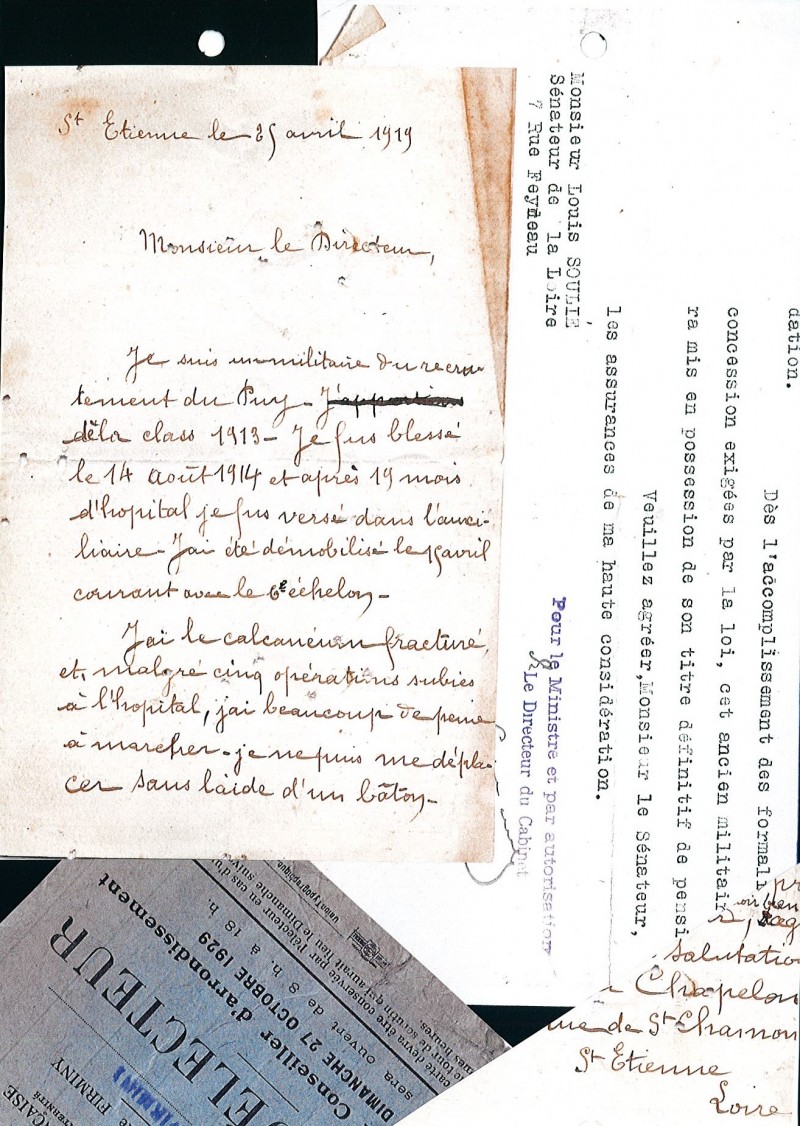 St Etienne le 25 avril 1919
Monsieur le Directeur,
Je suis un militaire du recru-
tement du Puy - J'appartiens
de la class 1913 - Je fus blessé
le 14 Août 1914 et après 19 mois
d'hopital je fus versé dans l'auxi-
liaire - J'ai été démobilisé le 15 avril
courant avec le 6e échelon -
J'ai le calcanéum fracturé,
et, malgré cinq opérations subies
à l'hopital, j'ai beaucoup de peine
à marcher - je ne puis me dépla-
cer sans l'aide d'un bâton -
Monsieur Louis SOULIÉ
Sénateur de la Loire
7 Rue Feydeau
dation.
Dès l'accomplissement des formali
concession exigées par la loi, cet ancien militair
ra mis en possession de son titre définitif de pensi
Veuillez agréer, Monsieur le Sénateur,
les assurances de ma haute considération.
Pour le Ministre et par autorisation
Le Directeur du Cabinet
salutatio
Chapelon
de St Chamon
St Etienne
Loire
carte devra être conservée par l'électeur en cas d'u
tour de scrutin qui aurait lieu le Dimanche suiv
mes heures
sera ouvert de 8 h. à 18 h.
DIMANCHE 27 OCTOBRE 1929
Conseiller d'arrondissement
ÉLECTEUR
FIRMINY
FIRMINY
ÇAISE